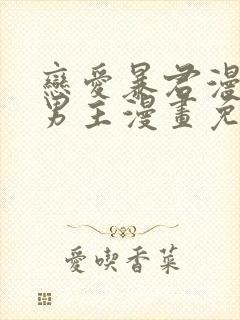 戀愛暴君漫
男主漫畫免
愛喫香菜